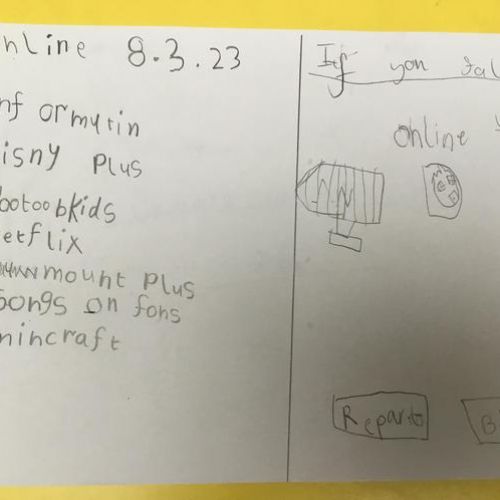 nline 8.3.23
nf ormytin
isny plus
ootoobkids
etflix
mount plus
songs on fons
nincraft
If you tal
online
Repart
B